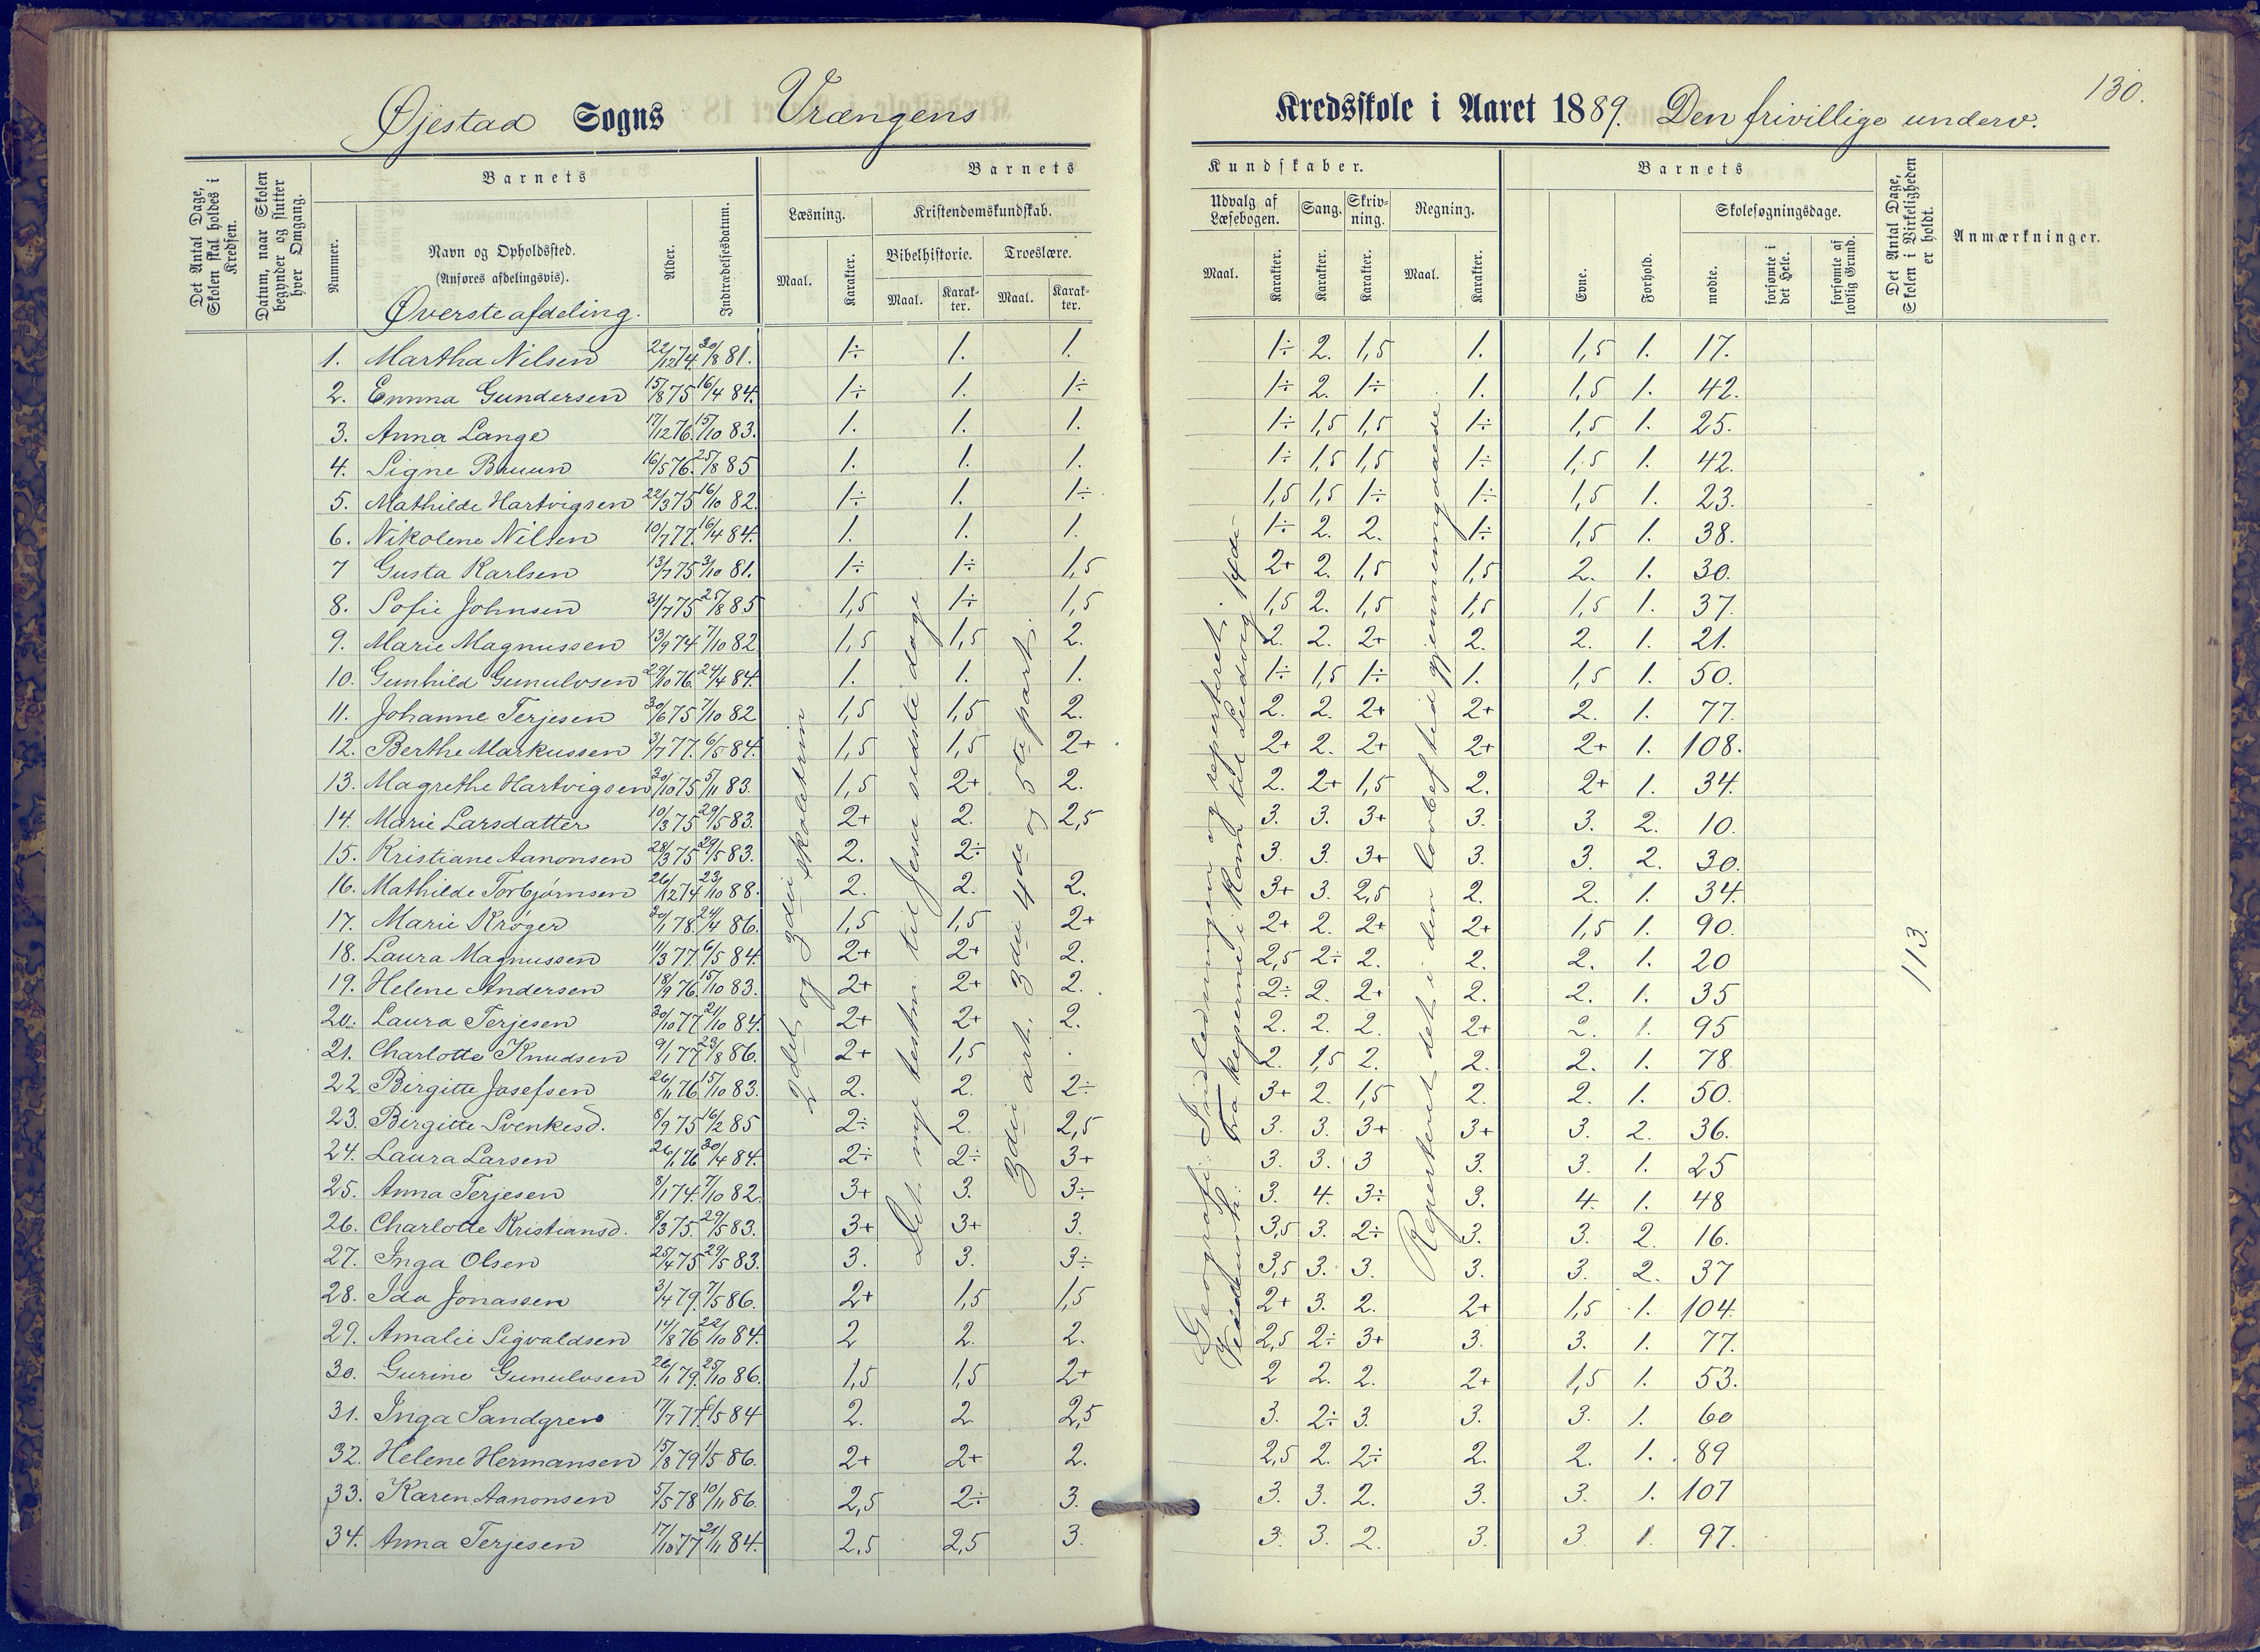 130.
Øjestad Sogns Vrængens Kredsskole i Aaret 1889. Den frivillige underv.
Det Antal Dage, Skolen skal holdes i Kredsen.
Datum, naar Skolen begynder og slutter hver Omgang.
Barnets
Nummer.
Navn og Opholdssted.
(Anføres afdelingsvis).
Øverste afdeling.
Alder.
Indtrædelsesdatum.
Barnets Kundskaber.
Læsning.
Maal. Karakter.
Kristendomskundskab.
Bibelhistorie.
Maal. Karakter.
Troeslære.
Maal. Karakter.
Udvalg af Læsebogen.
Maal. Karakter.
Sang.
Karakter.
Skrivning.
Karakter.
Regning.
Maal. Karakter.
Barnets
Evne.
Forhold.
Skolesøgningsdage.
mødte.
forsømte i det Hele.
forsømte af lovlig Grund.
Det Antal Dage, Skolen i Virkeligheden er holdt.
Anmærkninger.
1. Martha Nilsen 22/12 74. 30/8 81. 1÷ 1. 1. 1÷ 2. 1,5 1. 1,5 1. 17.
2. Emma Gundersen 15/8 75 16/4 84. 1÷ 1. 1÷ 1÷ 2. 1÷ 1. 1,5 1. 42.
3. Anna Lange 17/12 76. 15/10 83. 1. 1. 1. 1÷ 1,5 1,5 1÷ 1,5 1. 25.
4. Signe Bruun 16/5 76. 25/8 85 1. 1. 1. 1÷ 1,5 1,5 1÷ 1,5 1. 42.
5. Mathilde Hartvigsen 22/3 75 16/10 82. 1÷ 1. 1÷ 1,5 1,5 1÷ 1÷ 1,5 1. 23.
6. Nikolene Nilsen 10/7 77. 16/4 84. 1. 1. 1. 1÷ 2. 2. 1÷ 1,5 1. 38.
7 Gusta Karlsen 13/7 75 3/10 81. 1÷ 1÷ 1,5 2+ 2. 1,5 1,5 2. 1. 30.
8. Sofie Johnsen 31/7 75 25/8 85 1,5 1÷ 1,5 1,5 2. 1,5 1,5 1,5 1. 37.
9. Marie Magnussen 13/9 74 7/10 82 1,5 1,5 2. 2. 2. 2+ 2. 2. 1. 21.
10. Gunhild Gunulvsen 29/10 76. 24/4 84. 1. 1. 1. 1÷ 1,5 1÷ 1. 1,5 1. 50.
11. Johanne Terjesen 30/6 75 7/10 82 1,5 1,5 2. 2. 2. 2+ 2+ 2. 1. 77.
12. Berthe Markussen 3/7 77. 6/5 84. 1,5 1,5 2+ 2+ 2. 2+ 2+ 2+ 1. 108.
13. Magrethe Hartvigsen 30/10 75 5/11 83. 1,5 2+ 2. 2. 2+ 1,5 2. 2+ 1. 34.
14. Marie Larsdatter 10/3 75 29/5 83. 2+ 2. 2,5 3. 3. 3+ 3. 3. 2. 10.
15. Kristiane Aanonsen 28/3 75 29/5 83. 2. 2÷ 3. 3. 3+ 3. 3. 2. 30.
16. Mathilde Torbjørnsen 26/12 74 23/10 88. 2. 2. 2. 3+ 3. 2,5 2. 2. 1. 34.
17. Marie Krøger 30/1 78. 24/4 86. 1,5 1,5 2+ 2+ 2. 2+ 2+ 1,5 1. 90.
18. Laura Magnussen 11/3 77 6/5 84 2+ 2+ 2. 2,5 2÷ 2. 2. 2. 1. 20
19. Helene Andersen 18/9 76. 15/10 83. 2+ 2+ 2. 2÷ 2. 2+ 2. 2. 1. 35
20. Laura Terjesen 30/10 77 21/10 84. 2+ 2+ 2. 2. 2. 2. 2+ 2. 1. 95
21. Charlotte Knudsen 9/1 77 23/8 86. 2+ 1,5 . 2. 1,5 2. 2. 2. 1. 78.
22. Birgitte Josefsen 26/11 76 15/10 83. 2. 2. 2÷ 3+ 2. 1,5 2. 2. 1. 50.
23. Birgitte Svenkesd. 8/9 75 16/2 85 2÷ 2. 2,5 3. 3. 3+ 3+ 3. 2. 36.
24. Laura Larsen 26/1 76 30/4 84. 2÷ 2÷ 3+ 3. 3. 3 3. 3. 1. 25
25. Anna Terjesen 8/1 74. 7/10 82. 3+ 3. 3÷ 3. 4. 3÷ 3. 4. 1. 48
26. Charlotte Kristiansd. 8/3 75. 29/5 83. 3+ 3+ 3. 3,5 3. 2÷ 3. 3. 2. 16.
27. Inga Olsen 25/4 75 29/5 83. 3. 3. 3÷ 3,5 3. 3. 3. 3. 2. 37
28. Ida Jonassen 3/4 79. 7/5 86. 2+ 1,5 1,5 2+ 3. 2. 2+ 1,5 1. 104.
29. Amalie Sigvaldsen 14/8 76 22/10 84. 2 2. 2. 2,5 2÷ 3+ 3. 3. 1. 77.
30. Gurine Gunulvsen 26/1 79. 25/10 86. 1,5 1,5 2+ 2 2. 2. 2+ 1,5 1. 53.
31. Inga Sandgren 17/7 77 6/5 84 2. 2 2,5 3. 2÷ 3. 3. 3. 1. 60
32. Helene Hermansen 15/8 79 1/5 86. 2+ 2+ 2. 2,5 2. 2÷ 2. 2. 1. 89
33. Karen Aanonsen 5/5 78 10/11 86. 2,5 2÷ 3. 3. 3. 2. 3. 3. 1. 107
34. Anna Terjesen 17/10 77 21/11 84. 2,5 2,5 3. 3. 3. 2. 3. 3 1. 97.
2det og 3die skoletrin
Det nye testm. til Jesu sidste dage
3die art. 3die 4de og 5te part.
Geografi: Indledningen og repeteret;
Fra kejserne i Rom til Ludvig 14de
Repeteret det i den lovbefhed gjennemgaaede.
113.